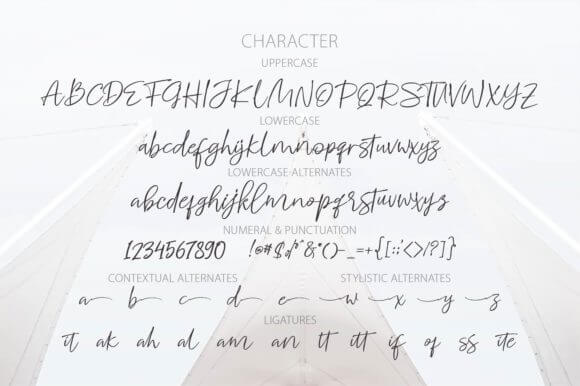 CHARACTER
UPPERCASE
ABCDEFGHIJKLMNOPQRSTUVWXYZ
LOWERCASE
abcdefghijklmnopqrstuvwxyz
LOWERCASE ALTERNATES
abcdefghijklmnopqrstuvwxyz
NUMERAL & PUNCTUATION
1234567890 !@#$%^&*()-_=+{[::'<>/?]}
CONTEXTUAL ALTERNATES STYLISTIC ALTERNATES
a b c d e w x y z
LIGATURES
it ak ah al am an tt itt if of ss ite